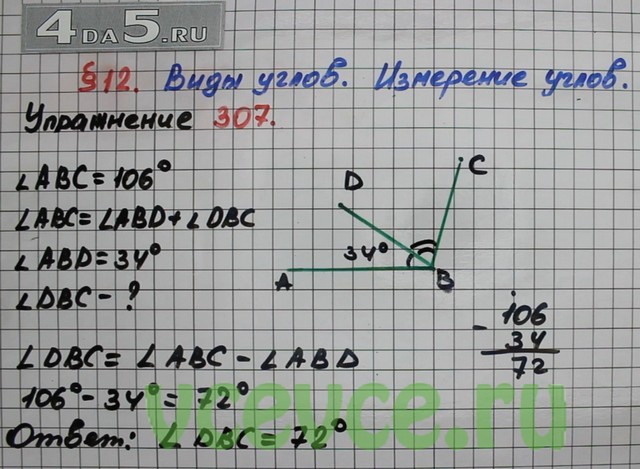 4ДА5.RU
§12. Виды углов. Измерение углов.
Упражнение 307.
∠ABC = 106°
∠ABC = ∠ABD + ∠DBC
∠ABD = 34°
∠DBC - ?
D
C
34°
A
B
106
- 34
72
∠DBC = ∠ABC - ∠ABD
106° - 34° = 72°
Ответ: ∠DBC = 72°
vreyce.ru